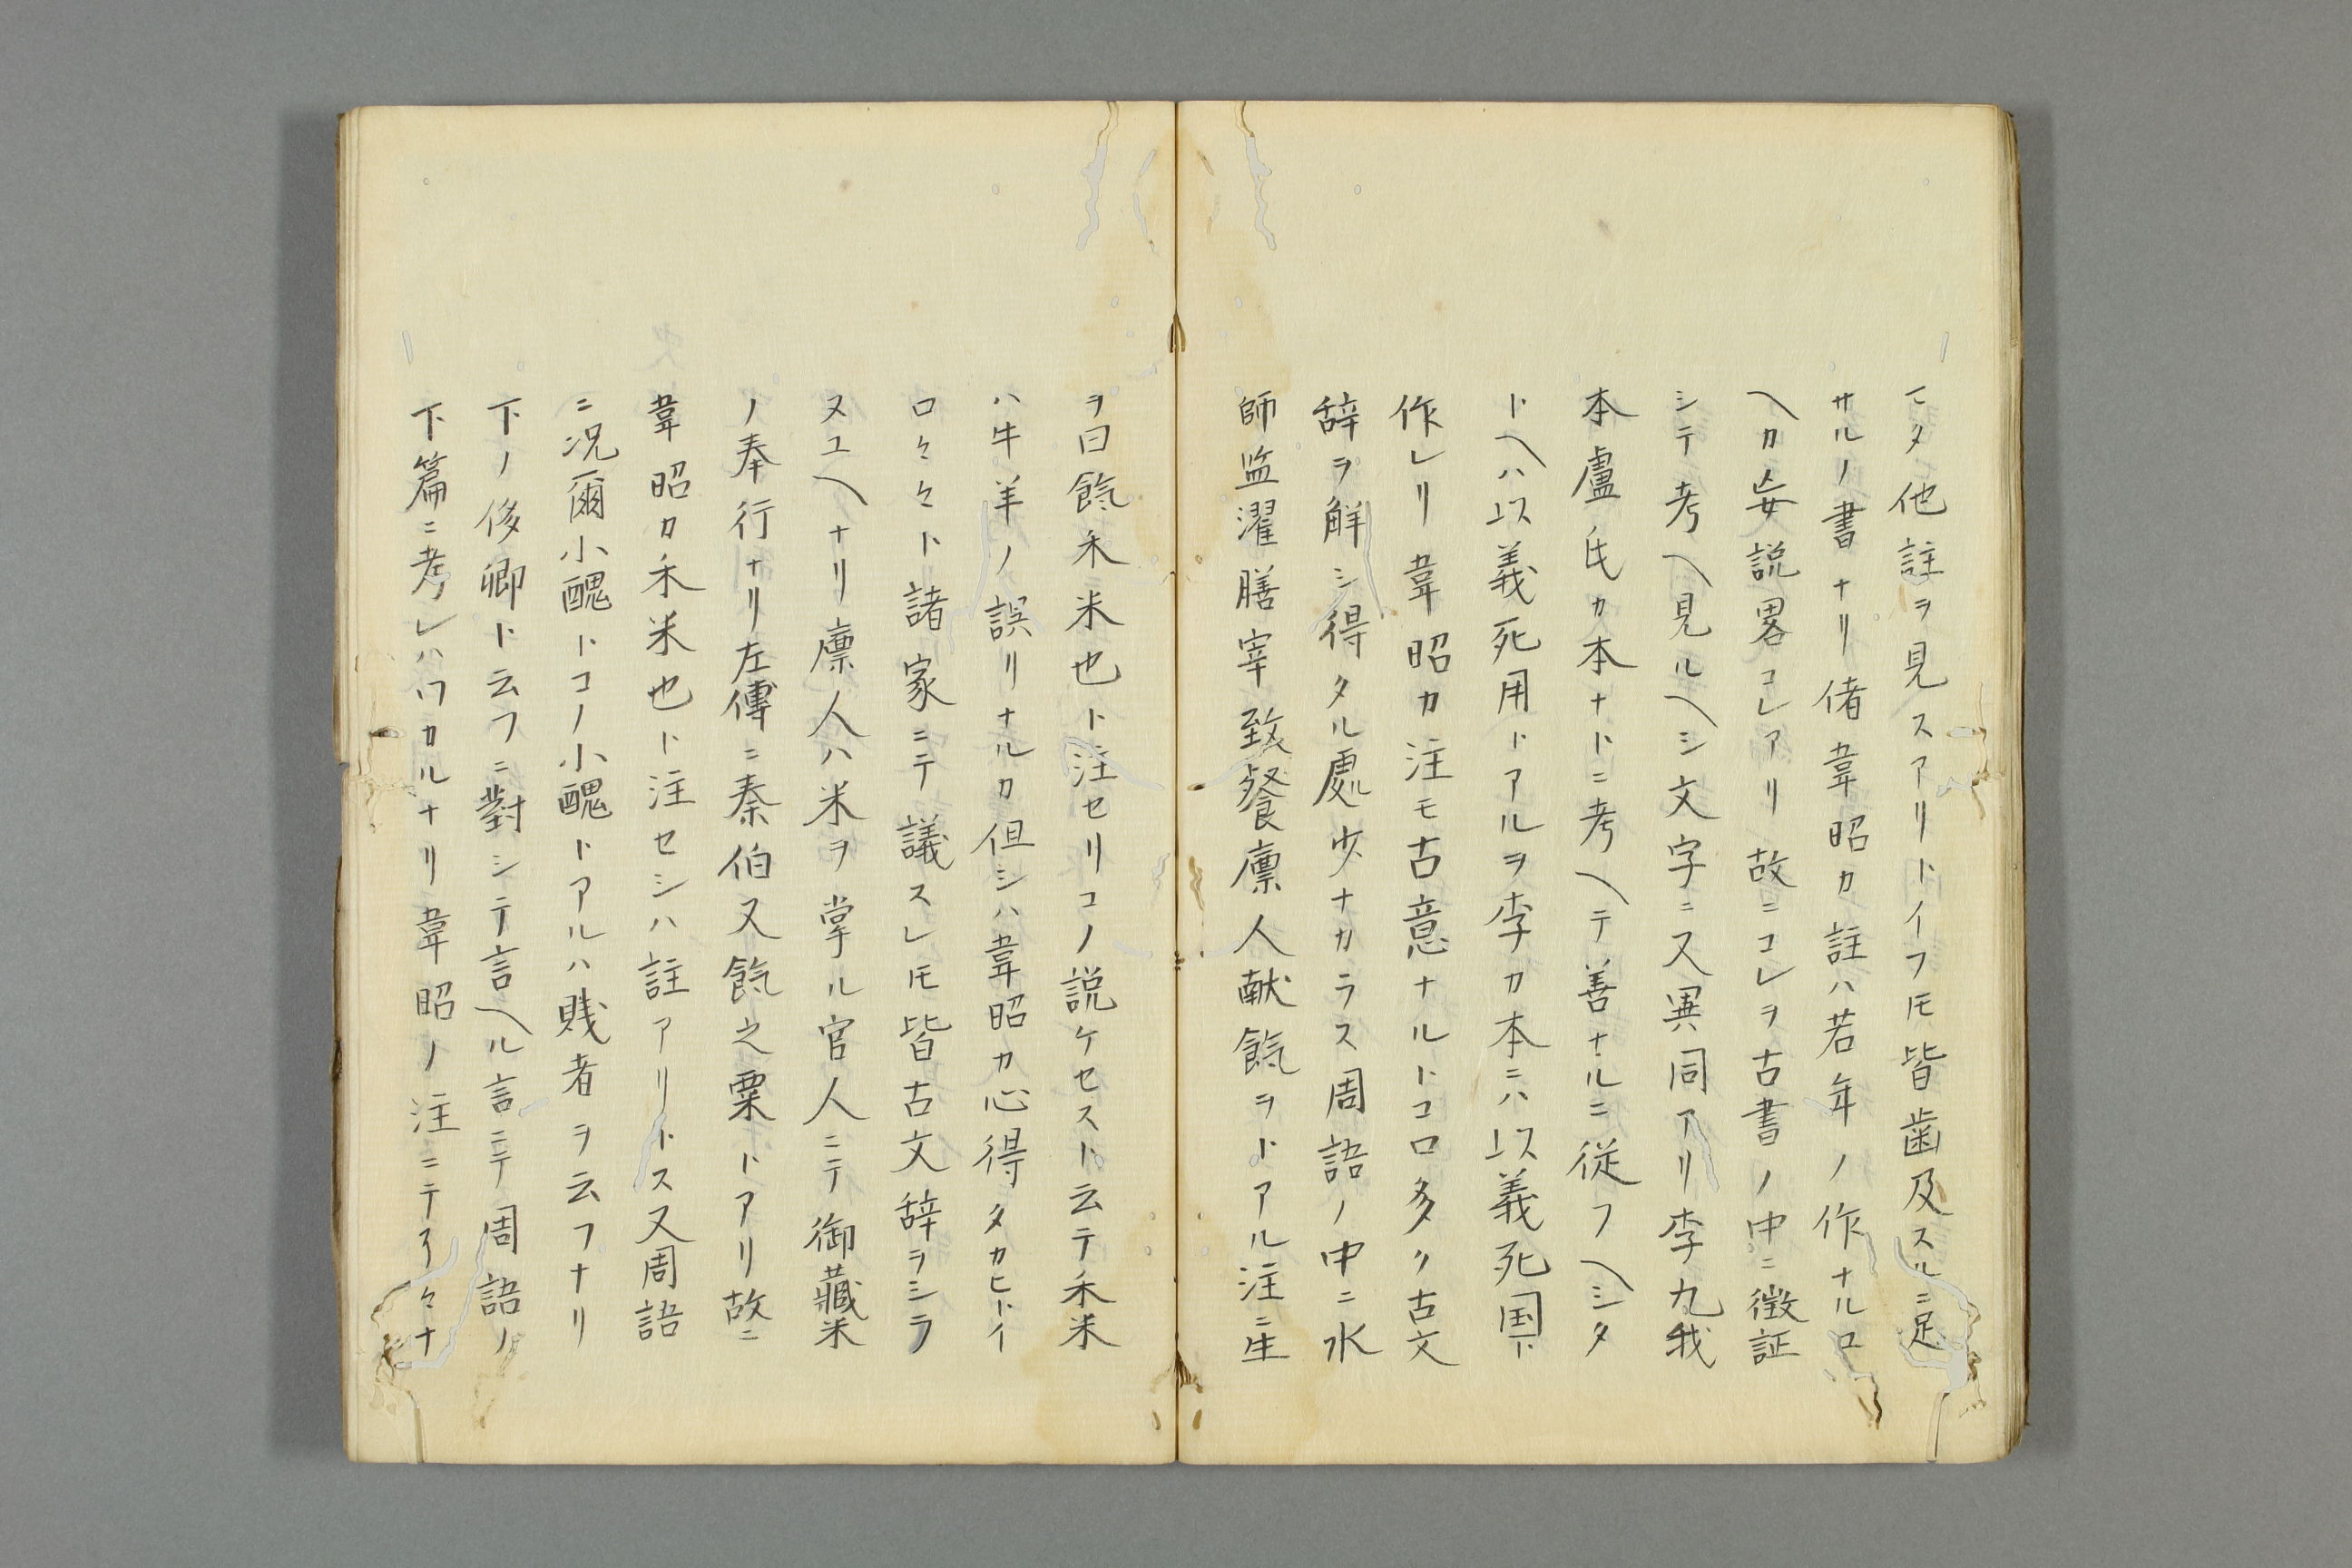 マタ他註ヲ見スアリトイフ𪜈皆歯及スルニ足
サルノ書ナリ偖韋昭カ註ハ若年ノ作ナルロ
ヘカ妄説畧コレアリ故ニコレヲ古書ノ中ニ徴証
シテ考ヘ見ルヘシ文字ニ又異同アリ李九我
本盧氏カ本ナトニ考ヘテ善ナルニ従フヘシタ
トヘハ以義死用トアルヲ李カ本ニハ以義死国ト
作レリ韋昭カ注モ古意ナルトコロ多ク古文
辞ヲ解シ得タル處少ナカラス周語ノ中ニ水
師監濯膳宰致餐廩人献餼ヲトアル注ニ生
ヲ曰餼禾米也ト注セリコノ説ケセスト云テ禾米
ハ牛羊ノ誤リナルカ但シハ韋昭カ心得タカヒトイ
ロ々々ト諸家ニテ議スレ𪜈皆古文辞ヲシラ
ヌユヘナリ廩人ハ米ヲ掌ル官人ニテ御藏米
ノ奉行ナリ左傳ニ秦伯又餼之粟トアリ故ニ
韋昭カ禾米也ト注セシハ註アリトス又周語
ニ況爾小醜トコノ小醜トアルハ賎者ヲ云フナリ
下ノ侈卿ト云フニ對シテ言ヘル言ニテ周語ノ
下篇ニ考レハワカルナリ韋昭ノ注ニテ々ナ